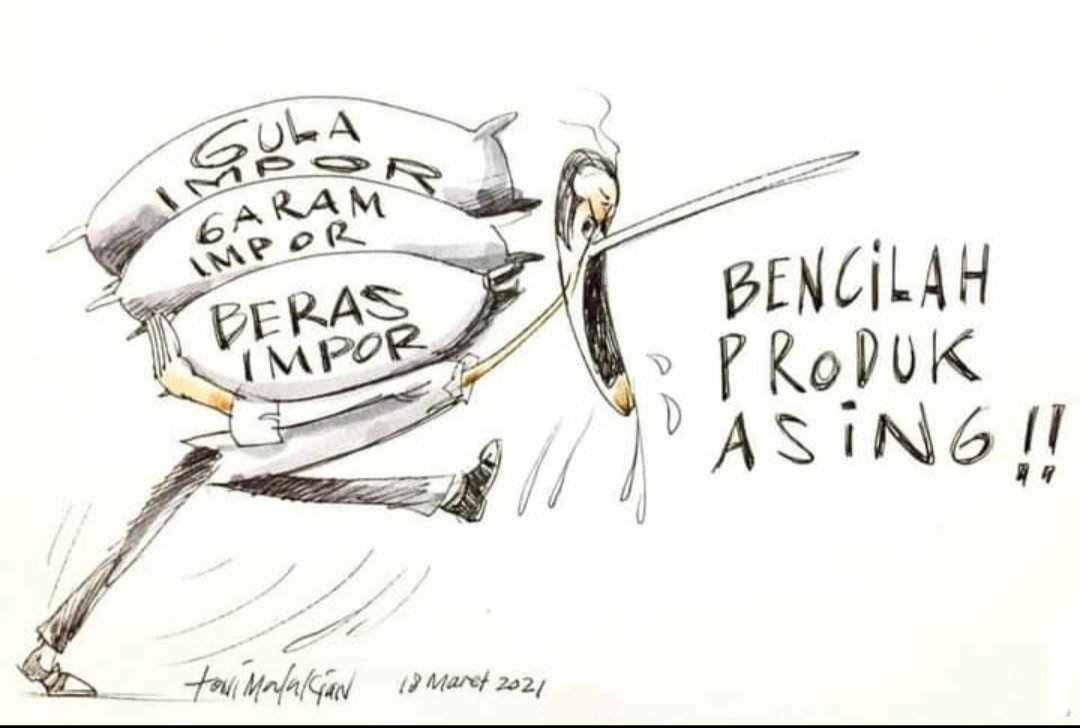 GULA
IMPOR
GARAM
IMPOR
BERAS
IMPOR
BENCiLAH
PRODUK
ASiNG!!
toniMalakian 18 Maret 2021